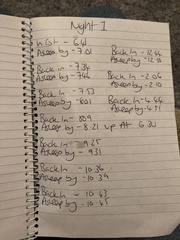 Night 1
1st - 6.41
Asleep by - 7.01
Back in - 7.34
Asleep by - 746
Back in - 7.53
Asleep by - 801
Back In - 809
Asleep by - 8.21 up At 6.30
Back in - 9.25
Asleep by - 931
Back in - 10.36
Asleep by - 10.39
Back in - 10.43
Asleep by - 10.45
Back In - 12.46
Asleep by - 12.58
Back In - 2.06
Asleep by - 2.10
Back In - 4.44
Asleep by - 4.51